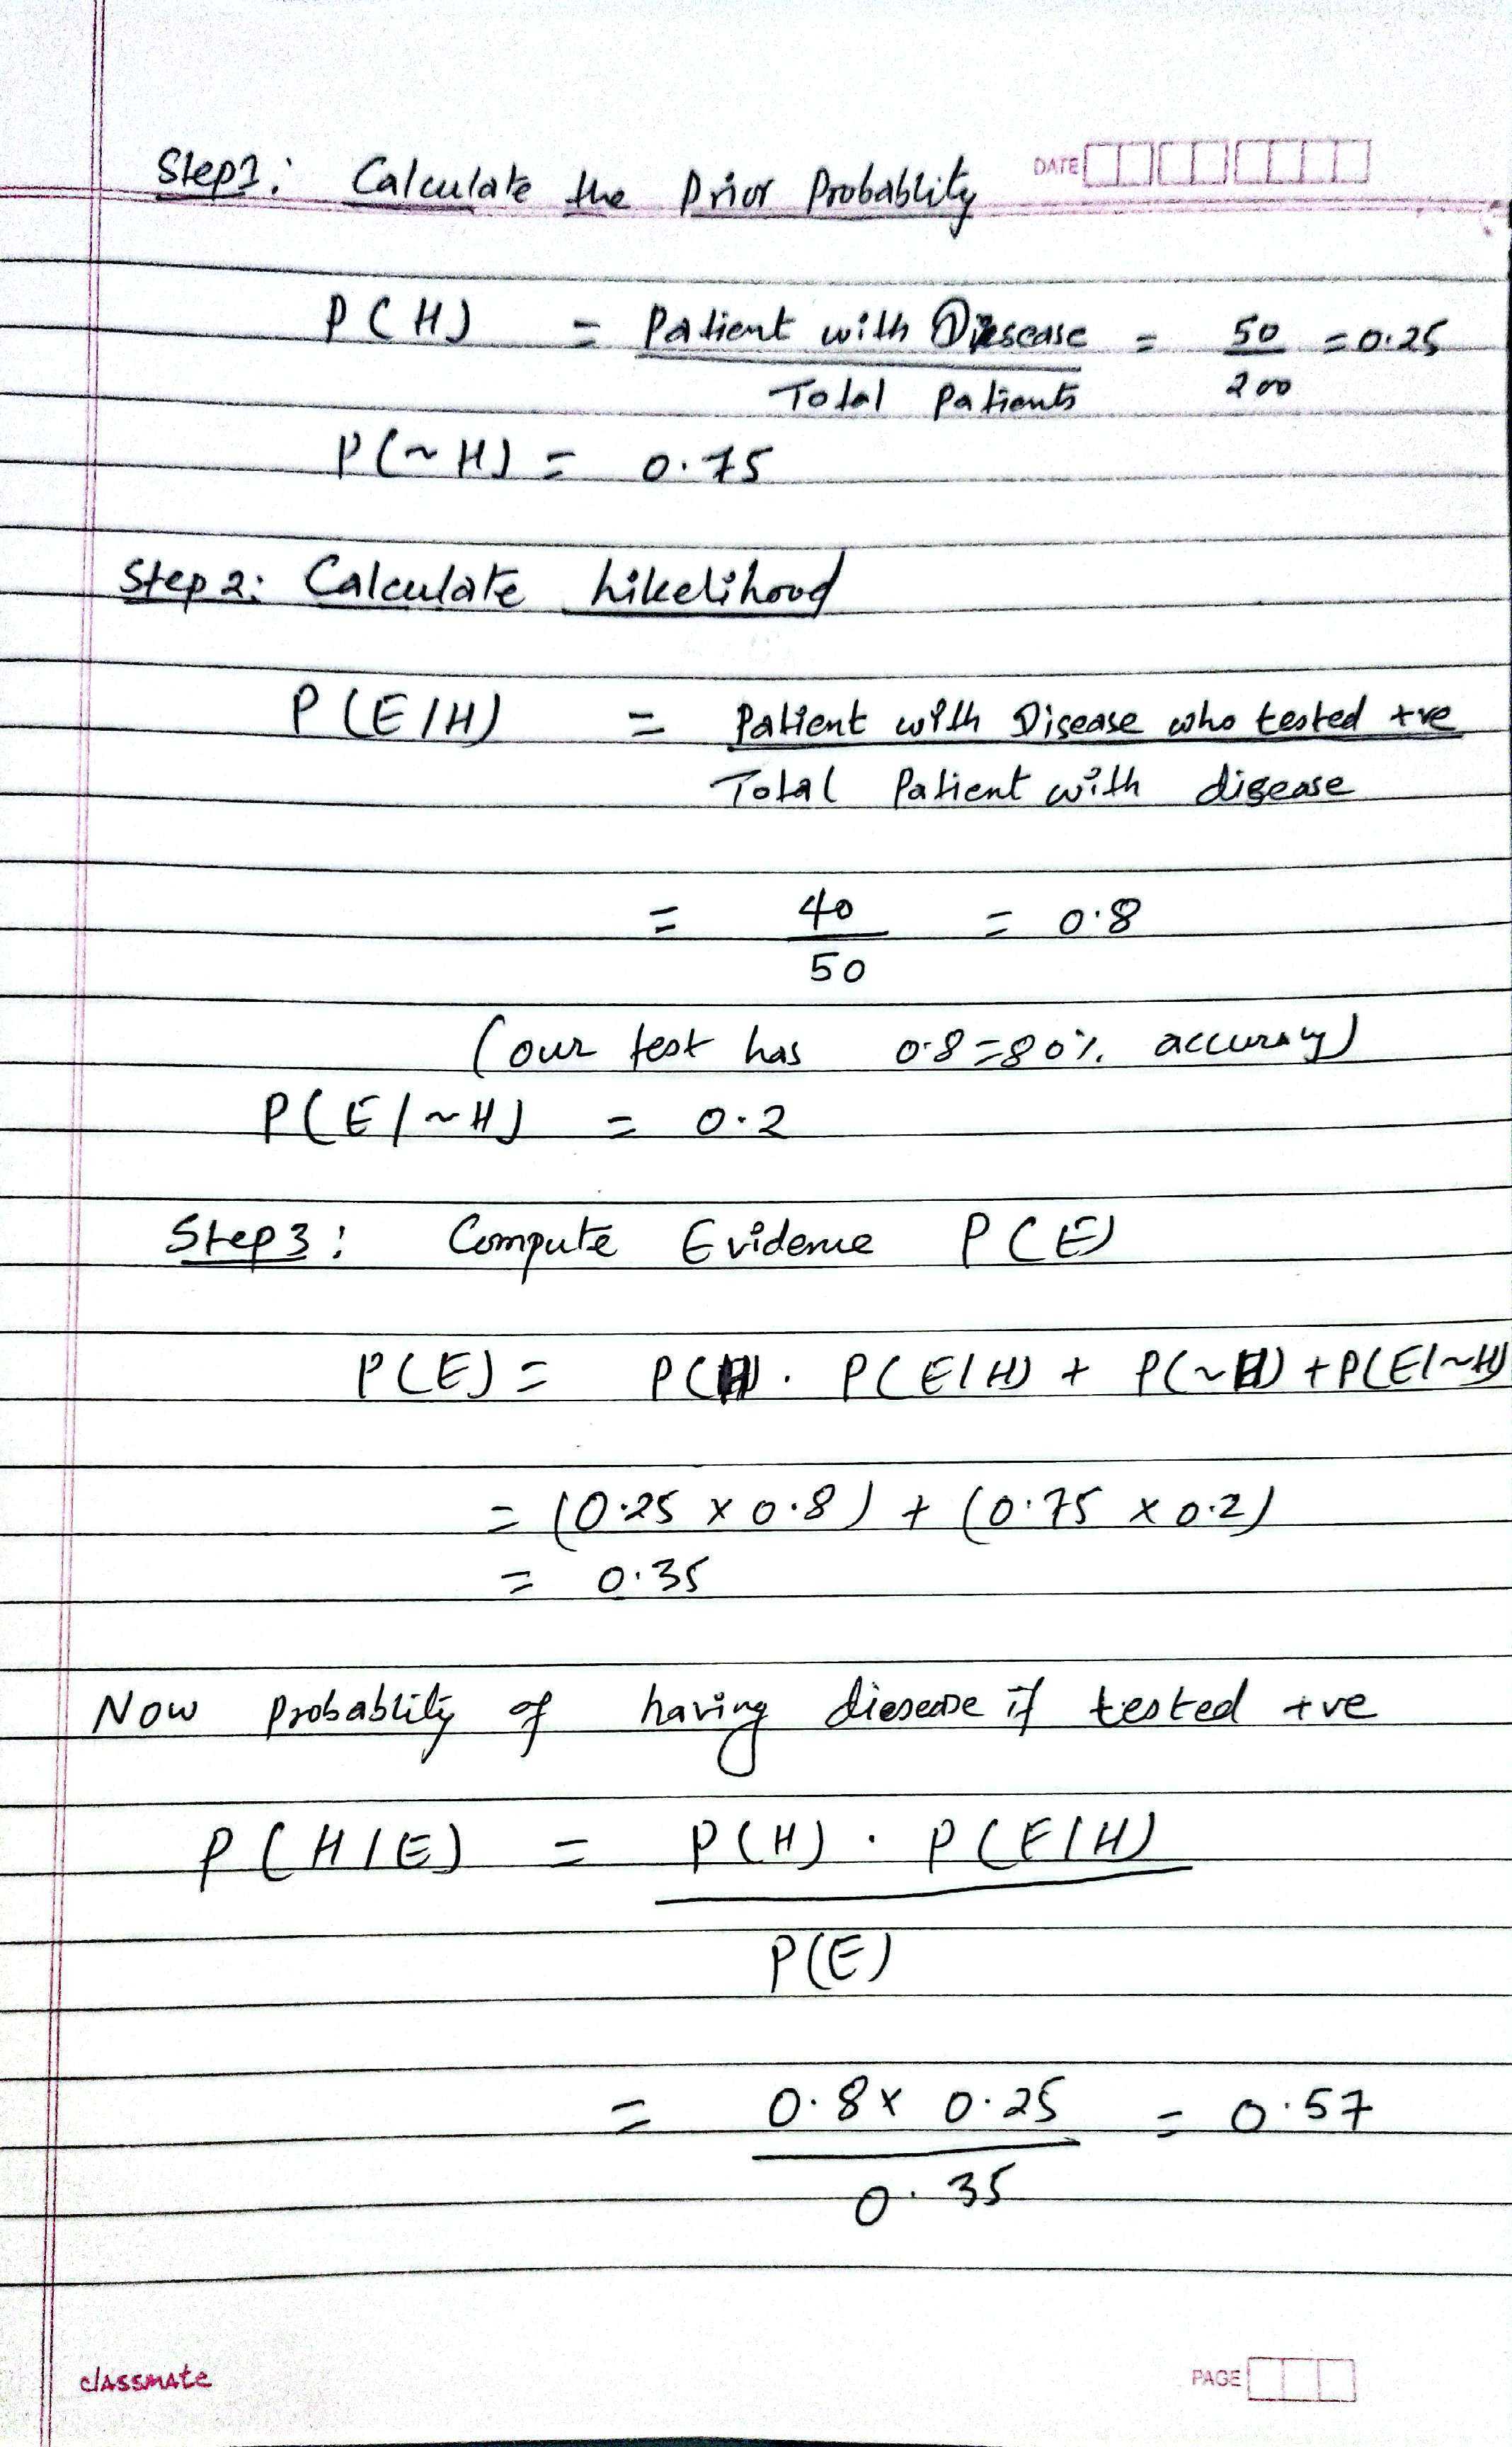 Step1: Calculate the Prior Probablity DATE
P(H) = Patient with Disease = 50 = 0.25
Total Patients 200
P(~H) = 0.75
Step 2: Calculate Likelihood
P(E/H) = Patient with Disease who tested +ve
Total Patient with disease
= 40 = 0.8
50
(our test has 0.8=80% accuracy)
P(E/~H) = 0.2
Step3: Compute Evidence P(E)
P(E) = P(H) . P(E/H) + P(~H) + P(E/~H)
= (0.25 x 0.8) + (0.75 x 0.2)
= 0.35
Now Probablity of having diesease if tested +ve
P(H/E) = P(H) . P(E/H)
P(E)
= 0.8 x 0.25 = 0.57
0.35
classmate PAGE